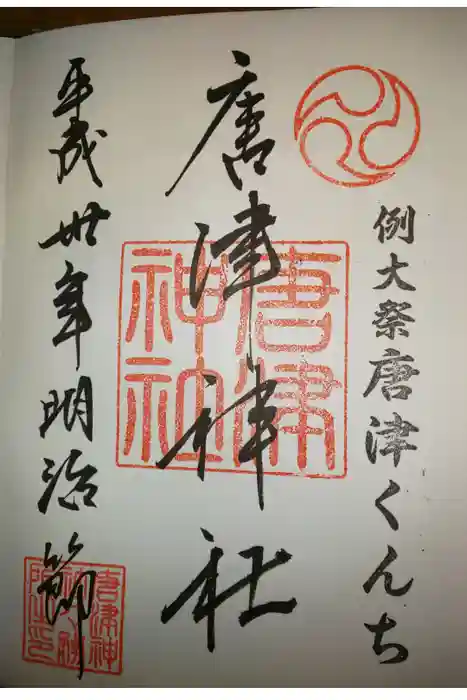 例大祭唐津くんち
唐津神社
唐津
神社
平成卅年明治節
唐津神